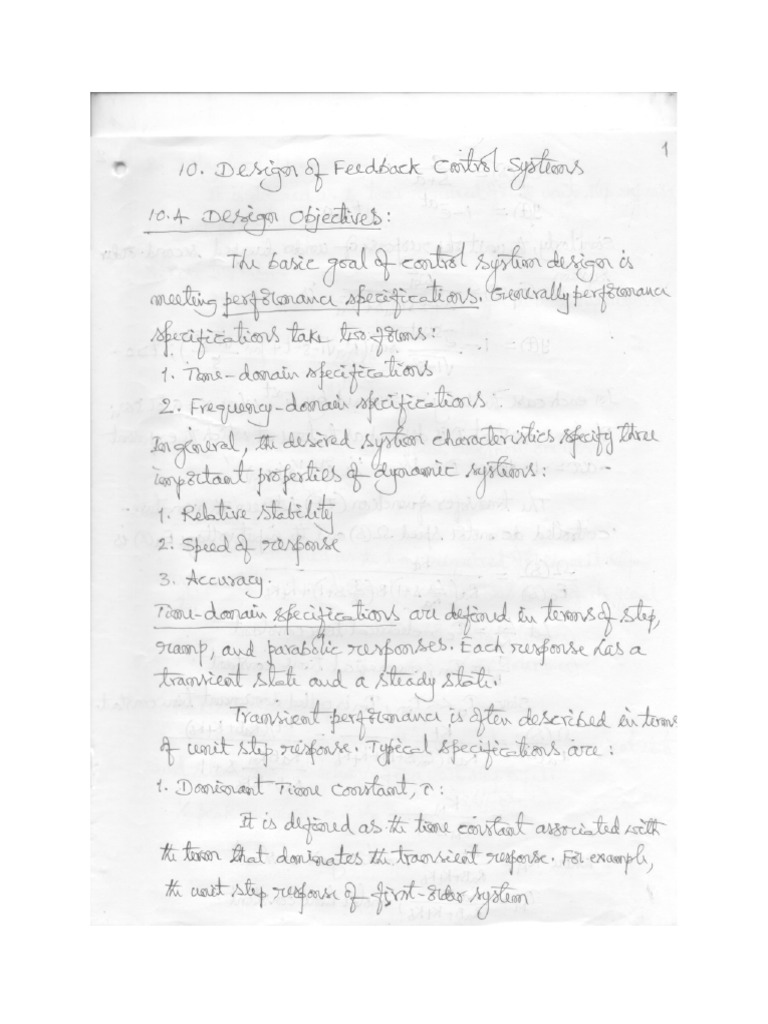 1
10. Design of Feedback Control Systems
10.A Design Objectives:
The basic goal of control system design is
meeting performance specifications. Generally performance
specifications take two forms:
1. Time-domain specifications
2. Frequency-domain specifications.
In general, the desired system characteristics specify three
important properties of dynamic systems:
1. Relative stability
2. Speed of response
3. Accuracy.
Time-domain specifications are defined in terms of step,
ramp, and parabolic responses. Each response has a
transient state and a steady state.
Transient performance is often described in terms
of unit step response. Typical specifications are:
1. Dominant Time Constant, τ:
It is defined as the time constant associated with
the term that dominates the transient response. For example,
the unit step response of first-order system